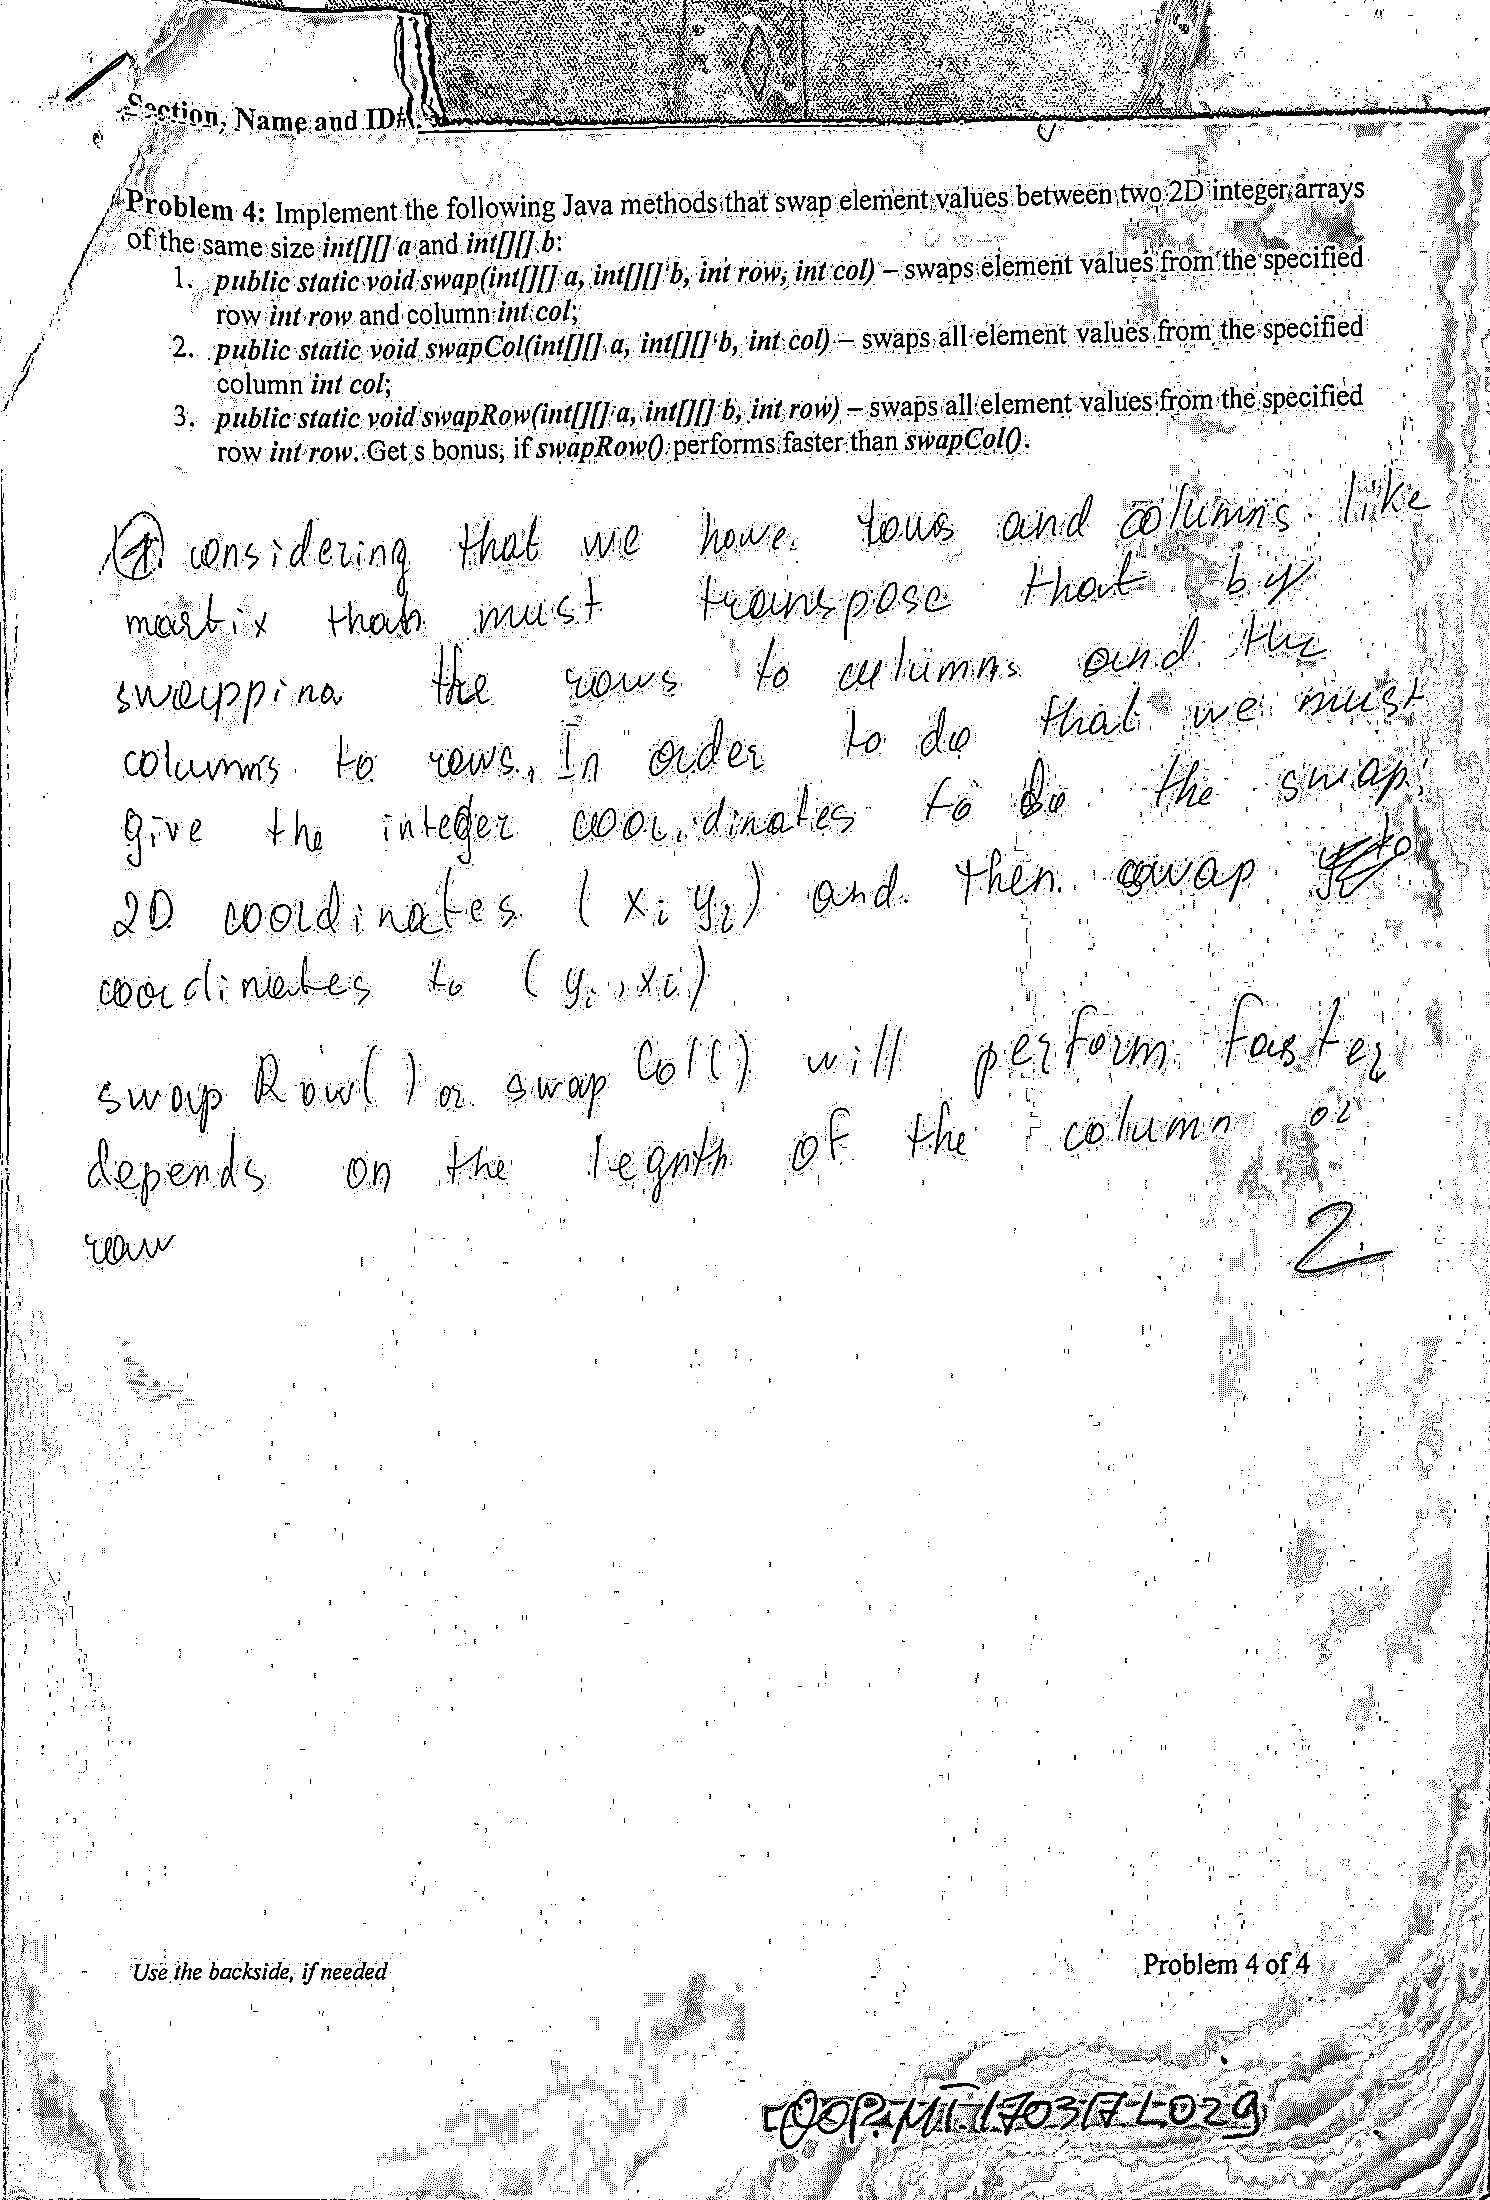 Section, Name and ID#:
Problem 4: Implement the following Java methods that swap element values between two 2D integer arrays
of the same size int[][] a and int[][] b:
1. public static void swap(int[][] a, int[][] b, int row, int col) – swaps element values from the specified
row int row and column int col;
2. public static void swapCol(int[][] a, int[][] b, int col) – swaps all element values from the specified
column int col;
3. public static void swapRow(int[][] a, int[][] b, int row) – swaps all element values from the specified
row int row. Get s bonus, if swapRow() performs faster than swapCol().
1. considering that we have rows and columns like
martix that must transpose that by
swappina the rows to columns and the
columns to rows, In order to do that we must
give the integer coordinates to do the swap.
2D coordinates (xi yi) and then swap
coordinates to (yi, xi)
swap Row() or swap Col() will perform faster
depends on the legnth of the column or
raw
2
Use the backside, if needed
Problem 4 of 4
OOP.MT.170317-L029